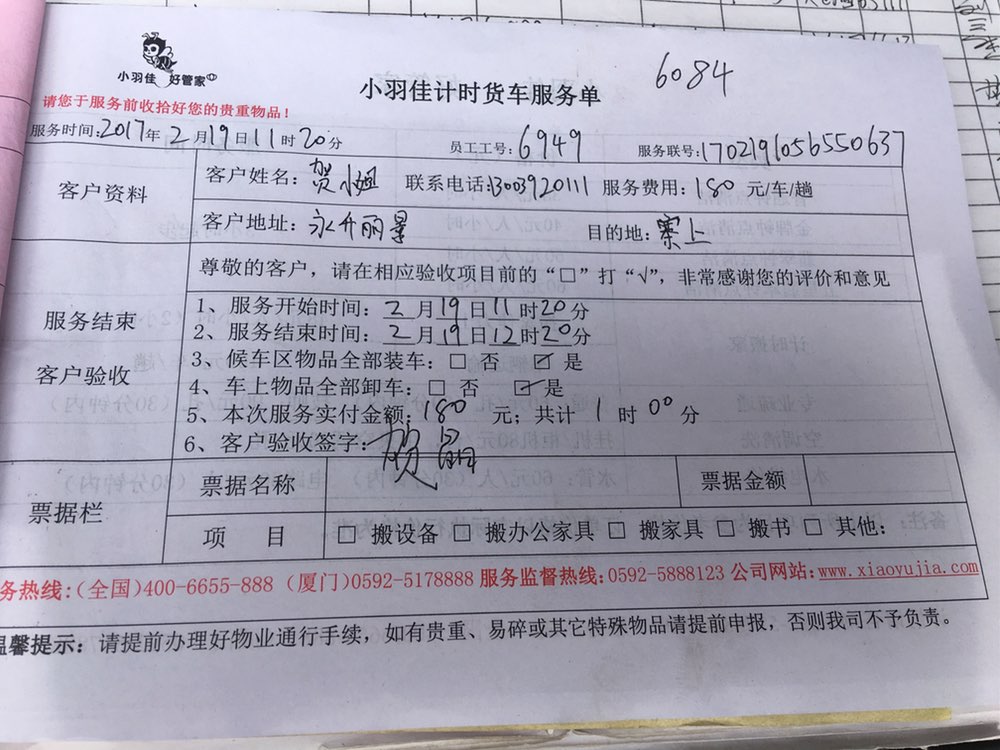 小羽佳 好管家
6084
小羽佳计时货车服务单
请您于服务前收拾好您的贵重物品！
服务时间：2017年2月19日11时20分 员工工号：6949 服务联号：1702191056550637
客户资料
客户姓名：贺小姐 联系电话：13003920111 服务费用：180 元/车/趟
客户地址：永升丽景 目的地：寨上
尊敬的客户，请在相应验收项目前的“□”打“√”，非常感谢您的评价和意见
服务结束
客户验收
1、服务开始时间：2月19日11时20分
2、服务结束时间：2月19日12时20分
3、候车区物品全部装车：□ 否 ☑ 是
4、车上物品全部卸车：□ 否 ☑ 是
5、本次服务实付金额：180 元；共计 1 时 00 分
6、客户验收签字：
票据栏
票据名称 票据金额
项 目 □ 搬设备 □ 搬办公家具 □ 搬家具 □ 搬书 □ 其他：
务热线：(全国)400-6655-888 (厦门)0592-5178888 服务监督热线：0592-5888123 公司网站：www.xiaoyujia.com
温馨提示：请提前办理好物业通行手续，如有贵重、易碎或其它特殊物品请提前申报，否则我司不予负责。